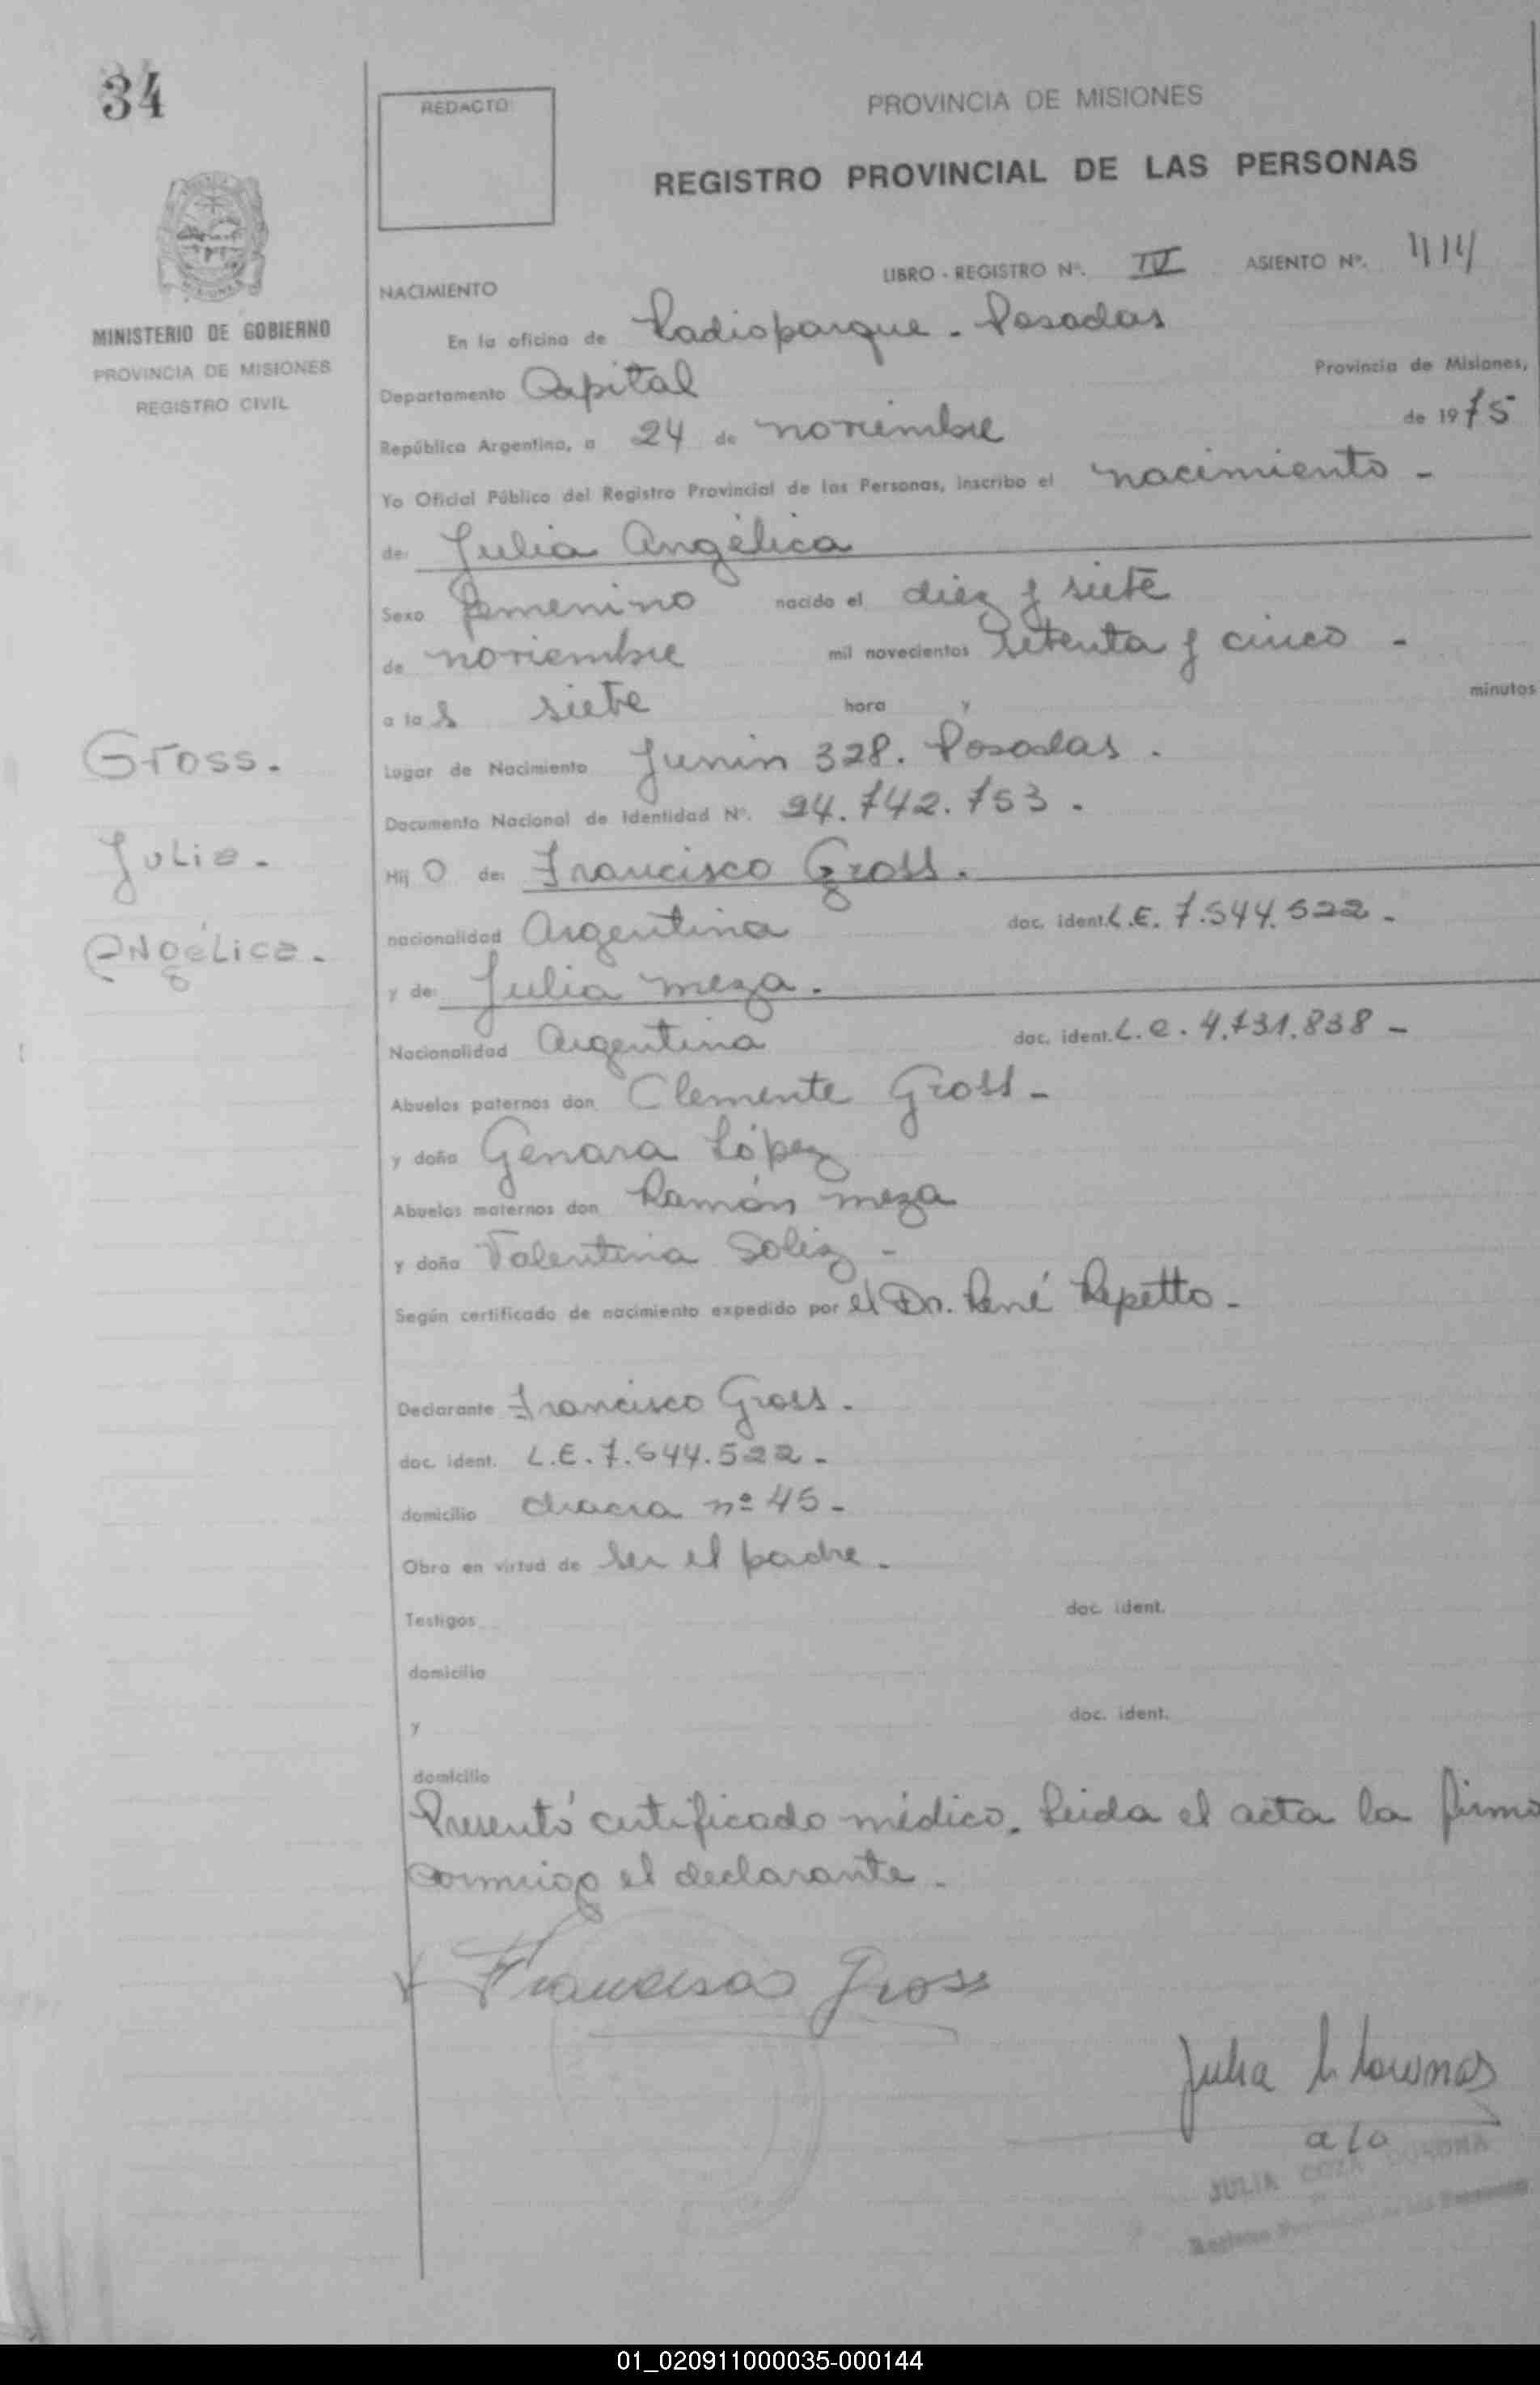 34
REDACTO
PROVINCIA DE MISIONES
REGISTRO PROVINCIAL DE LAS PERSONAS
MINISTERIO DE GOBIERNO
PROVINCIA DE MISIONES
REGISTRO CIVIL
LIBRO - REGISTRO Nº. IV ASIENTO Nº.
NACIMIENTO
En la oficina de Radioparque - Posadas
Departamento Capital Provincia de Misiones,
República Argentina, a 24 de noviembre de 1975
Yo Oficial Público del Registro Provincial de las Personas, inscribo el nacimiento -
de: Julia Angélica
Sexo femenino nacido el diez y siete
de noviembre mil novecientos setenta y cinco -
a las siete hora y minutos
Gross.
Julia.
Angélica.
Lugar de Nacimiento Junin 328. Posadas.
Documento Nacional de Identidad Nº. 24.742.753.
Hij o de: Francisco Gross.
nacionalidad Argentina doc. ident. L.E. 7.544.522-
y de: Julia meza.
Nacionalidad Argentina doc. ident. L.C. 4.731.838-
Abuelos paternos don Clemente Gross-
y doña Genara López
Abuelos maternos don Ramón meza
y doña Valentina Soliz -
Según certificado de nacimiento expedido por el Dr. René Repetto-
Declarante Francisco Gross.
doc. ident. L.E. 7.544.522-
domicilio chacra nº 45-
Obra en virtud de ser el padre.
Testigos doc. ident.
domicilio
y doc. ident.
domicilio
Presentó certificado médico. Leida el acta la firma
conmigo el declarante.
Francisco Gross
Julia
JULIA
01_020911000035-000144